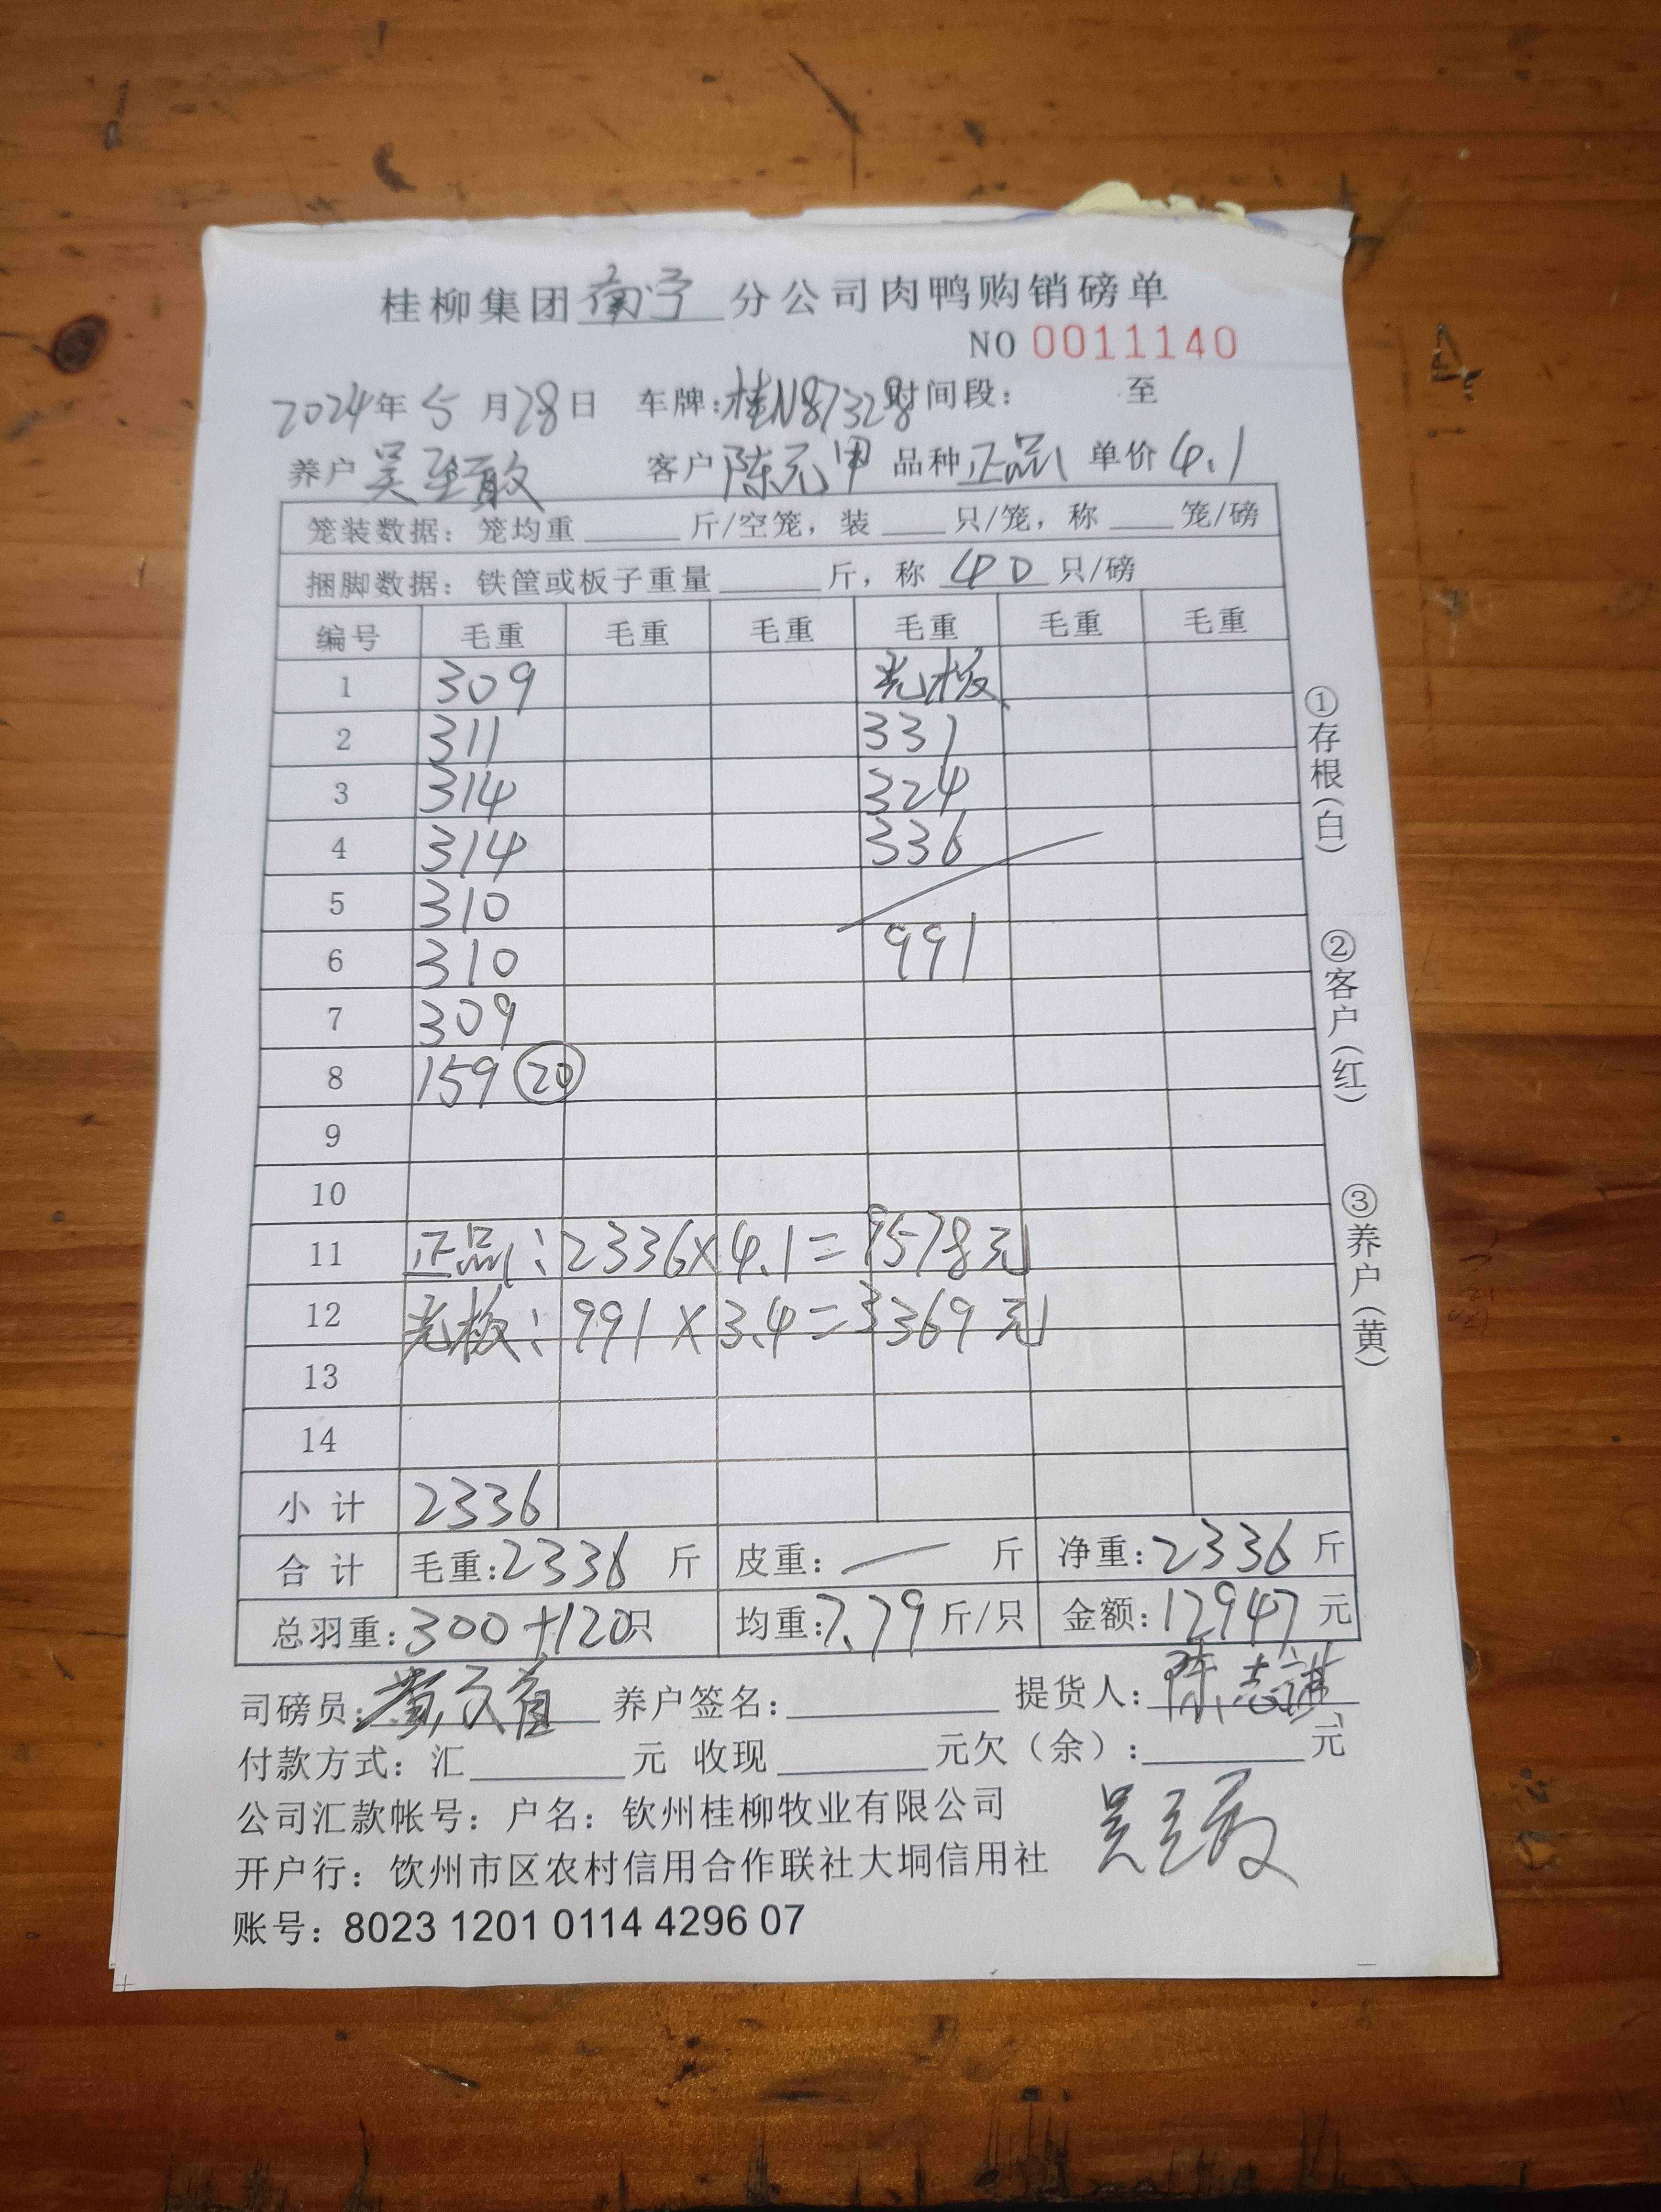 桂柳集团南宁分公司肉鸭购销磅单
NO 0011140
2024年5月28日 车牌:桂N87328时间段: 至
养户吴至敢 客户陈元甲 品种正品 单价4.1
笼装数据: 笼均重 斤/空笼, 装 只/笼, 称 笼/磅
捆脚数据: 铁筐或板子重量 斤, 称 40 只/磅
编号 毛重 毛重 毛重 毛重 毛重 毛重
1 309 光板
2 311 331
3 314 324
4 314 336
5 310
6 310 991
7 309
8 159 20
9
10
11 正品: 2336×4.1=9578元
12 光板: 991×3.4=3369元
13
14
小计 2336
合计 毛重:2336斤 皮重:— 斤 净重:2336斤
总羽重:300+120只 均重:7.79斤/只 金额:12947元
司磅员: 养户签名: 提货人:陈志
付款方式: 汇 元 收现 元欠(余): 元
公司汇款帐号: 户名: 钦州桂柳牧业有限公司
开户行: 饮州市区农村信用合作联社大垌信用社
吴至敢
账号: 8023 1201 0114 4296 07
①存根(白)
②客户(红)
③养户(黄)